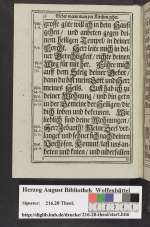 Gebet wann man zur Kirchen gehet.
grosse güte will ich in dein Hauß
gehen / und anbeten gegen dei-
nen heiligen Tempel in deiner
Forcht. HErr leite mich in dei-
ner Gerechtigkeit / richte deinen
Weg für mir her.
auff dem Steig deiner Gebot /
dann du bist mein Gott und HErr
meines Heils.
deiner Wohnung / und bin gern
in der Gemeine der Heiligen / die
dich loben und bekennen. Wie
lieblich sind deine Wohnungen /
HErr Zebaoth! Meine Seel ver-
langet und sehnet sich nach deinen
Vorhöfen. Kommt / last uns an-
beten und knien / und niderfallen
Herzog August Bibliothek Wolfenbüttel
Signatur: 216.20 Theol.
http://diglib.hab.de/drucke/216-20-theol/start.htm